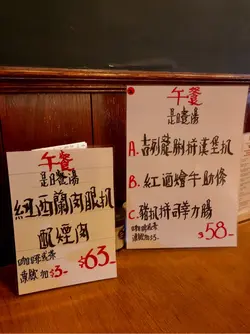 午餐
是日餐湯
紐西蘭肉眼扒
配煙肉
咖啡或茶
凍飲加$3-
$63-
午餐
是日餐湯
A. 吉列龍脷拼漢堡扒
B. 紅酒燴牛助條
C. 豬扒拼司華力腸
咖啡或茶
凍飲加$3-
$58-